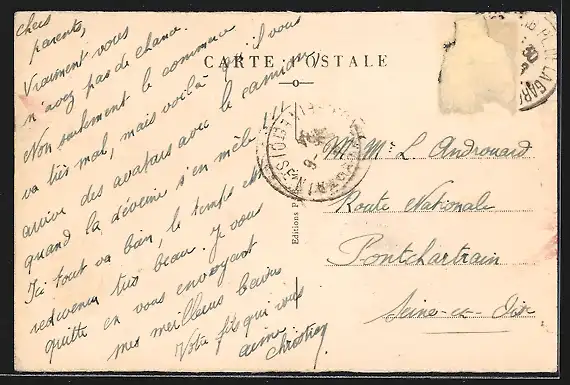 Chers
parents,
Vraiment vous
n'avez pas de chance.
Non seulement le commerce
va très mal, mais voilà qu'il vous
arrive des avatars avec le camion,
quand la déveine s'en mêle !!!
Ici tout va bien, le temps est
redevenu très beau. Je vous
quitte en vous envoyant
mes meilleurs baisers
Votre fils qui vous
aime
CARTE POSTALE
Editions P
M. Mme L. Androuard
Route Nationale
Pontchartrain
Seine-et-Oise
LA GARE